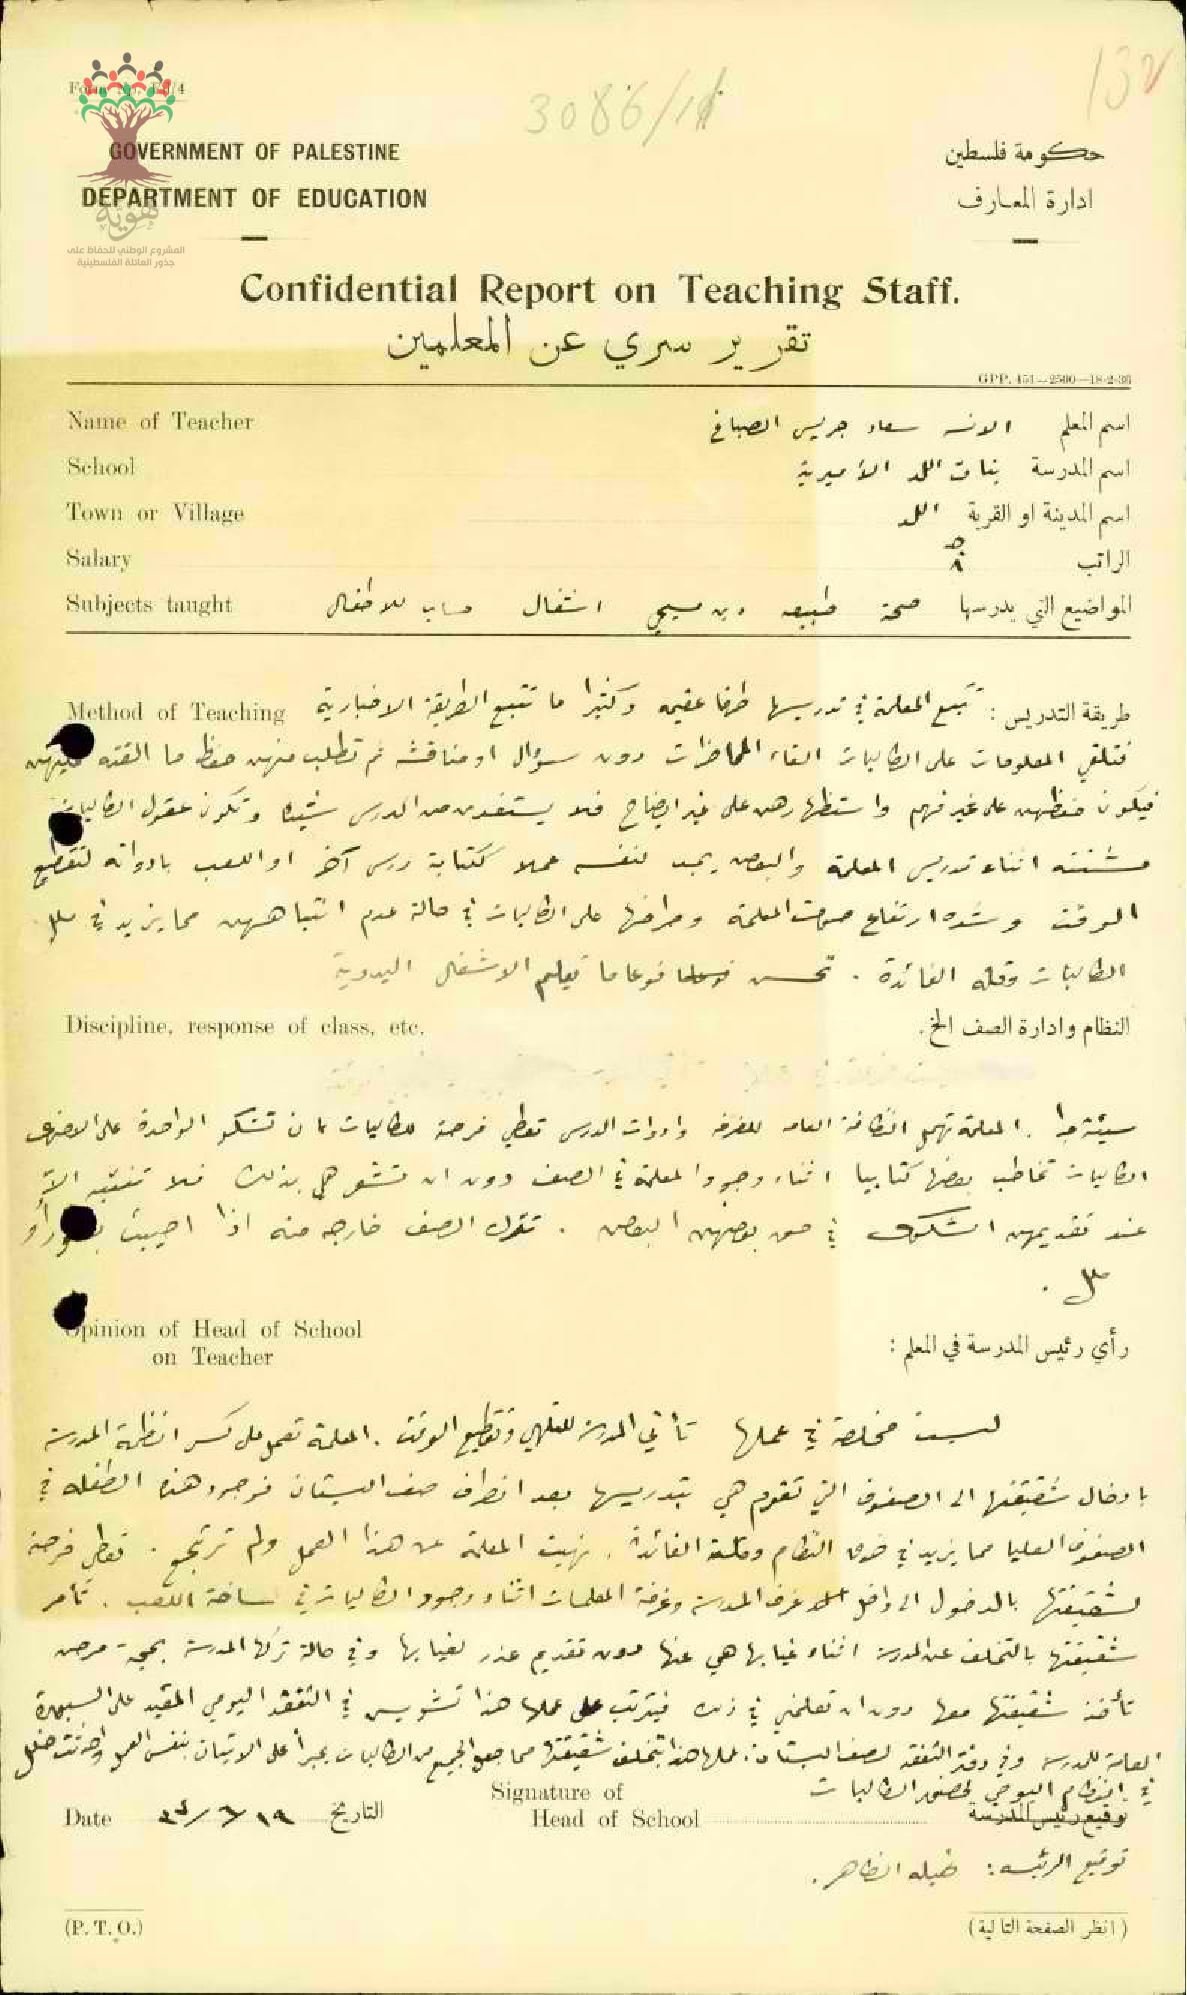 132
3086/11
Form No. Ed/4
GOVERNMENT OF PALESTINE
حكومة فلسطين
DEPARTMENT OF EDUCATION
ادارة المعارف
هوية
المشروع الوطني للحفاظ على
جذور العائلة الفلسطينية
Confidential Report on Teaching Staff.
تقرير سري عن المعلمين
GPP. 451—2500—18-2-36
Name of Teacher اسم المعلم الانسه سعاد جريس الصباغ
School اسم المدرسة بنات اللد الأميرية
Town or Village اسم المدينة او القرية اللد
Salary الراتب ٨
Subjects taught المواضيع التي يدرسها صحة طبيعه دين مسيحي اشغال حساب للاطفال
Method of Teaching طريقة التدريس : تتبع المعلمة في تدريسها طرقا عقيمه وكثيرا ما تتبع الطريقة الاخبارية
فتلقي المعلومات على الطالبات القاء المحاضرات دون سؤال او مناقشه ثم تطلب منهن حفظ ما القته عليهن
فيكون حفظهن على غير فهم واستظهارهن على غير ايضاح فلا يستفدن من الدرس شيئا وتكون عقول الطالبات
مشتته اثناء تدريس المعلمة والبعض يجد لنفسه عملا ككتابة درس آخر او اللعب بادواته لتقطيع
الوقت وشده ارتفاع صوت المعلمة وصراخها على الطالبات في حالة عدم انتباههن مما يزيد في ملل
الطالبات وقله الفائدة . تحسن نوعا ما تعليم الاشغال اليدوية
Discipline, response of class, etc. النظام وادارة الصف الخ.
سيئة جدا . المعلمة تهمل النظافة العامه للغرفه وادوات الدرس تعطي فرصة للطالبات بان تشكو الواحدة على الاخرى
الطالبات تخاطب بعضها كتابيا اثناء وجود المعلمة في الصف دون ان تشعر هي بذلك فلا تنتبه الا
عند تقديمهن الشكوى في حق بعضهن البعض . تترك الصف خارجه منه اذا اصيبت او
ملل .
Opinion of Head of School رأي رئيس المدرسة في المعلم :
on Teacher
ليست مخلصة في عملها تأتي المدرسة للتلهي وتقطيع الوقت . المعلمة تعمل على كسر انظمة المدرسة
بادخال شقيقتها الى الصفوف التي تقوم هي بتدريسها بعد انصراف صف البستان فوجود هذه الطفله في
الصفوف العليا مما يزيد في خرق النظام وقلة الفائدة . نهيت المعلمة عن هذا العمل ولم ترتجع . تعطي فرصة
لشقيقتها بالدخول الى داخل غرف المدرسة وغرفة المعلمات اثناء وجود الطالبات في ساحة اللعب . تأمر
شقيقتها بالتخلف عن المدرسة اثناء غيابها هي عنها دون تقديم عذر لغيابها وفي حالة تركها المدرسة بحجة مرض
تأخذ شقيقتها معها دون ان تعلمني في ذلك فيترتب على عملها هذا تشويش في التفقد اليومي المقيد على السبورة
العامة للمدرسة وفي دفتر التفقد لصف البستان . عملها هذا بتخلف شقيقتها مما جعل الجميع من الطالبات يجرأ على الاتيان بنفس العمل
في النظام اليومي لحضور الطالبات
Signature of
Head of School توقيع رئيس المدرسة
Date التاريخ ١٩/٦/
توقيع الرئيسه : الظاهر .
(P. T. O.) (انظر الصفحة التالية)